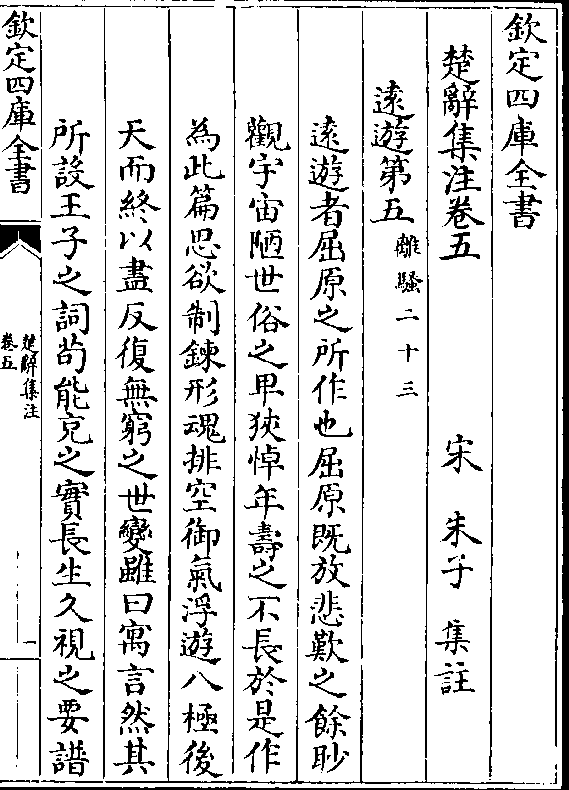 欽定四庫全書
楚辭集注卷五
宋 朱子 集註
遠遊第五 離騷二十三
遠遊者屈原之所作也屈原既放悲歎之餘眇
觀宇宙陋世俗之卑狹悼年壽之不長於是作
為此篇思欲制鍊形魂排空御氣浮遊八極後
天而終以盡反復無窮之世變雖曰寓言然其
所設王子之詞苟能充之實長生久視之要諸
欽定四庫全書
楚辭集注
卷五
一